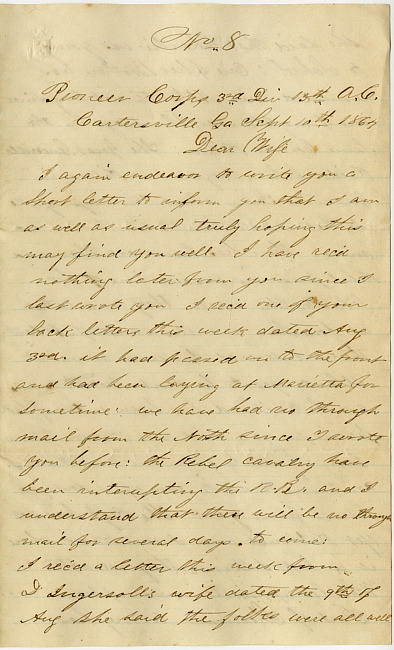 No. 8
Pioneer Corps 3rd Div 15th A.C.
Cartersville Ga Sept 10th 1864
Dear Wife
I again endeavor to write you a
short letter to inform you that I am
as well as usual truly hoping this
may find you well. I have rec'd
nothing later from you since I
last wrote you I rec'd one of your
back letters this week dated Aug
3rd. it had passed on to the front
and had been laying at Marietta for
sometime: we have had no through
mail from the North since I wrote
you before: the Rebel cavalry have
been interupting the R.R. and I
understand that there will be no through
mail for several days to come:
I recd a letter this week from
D Ingersolls wife dated the 9th of
Aug she said the folks were all well